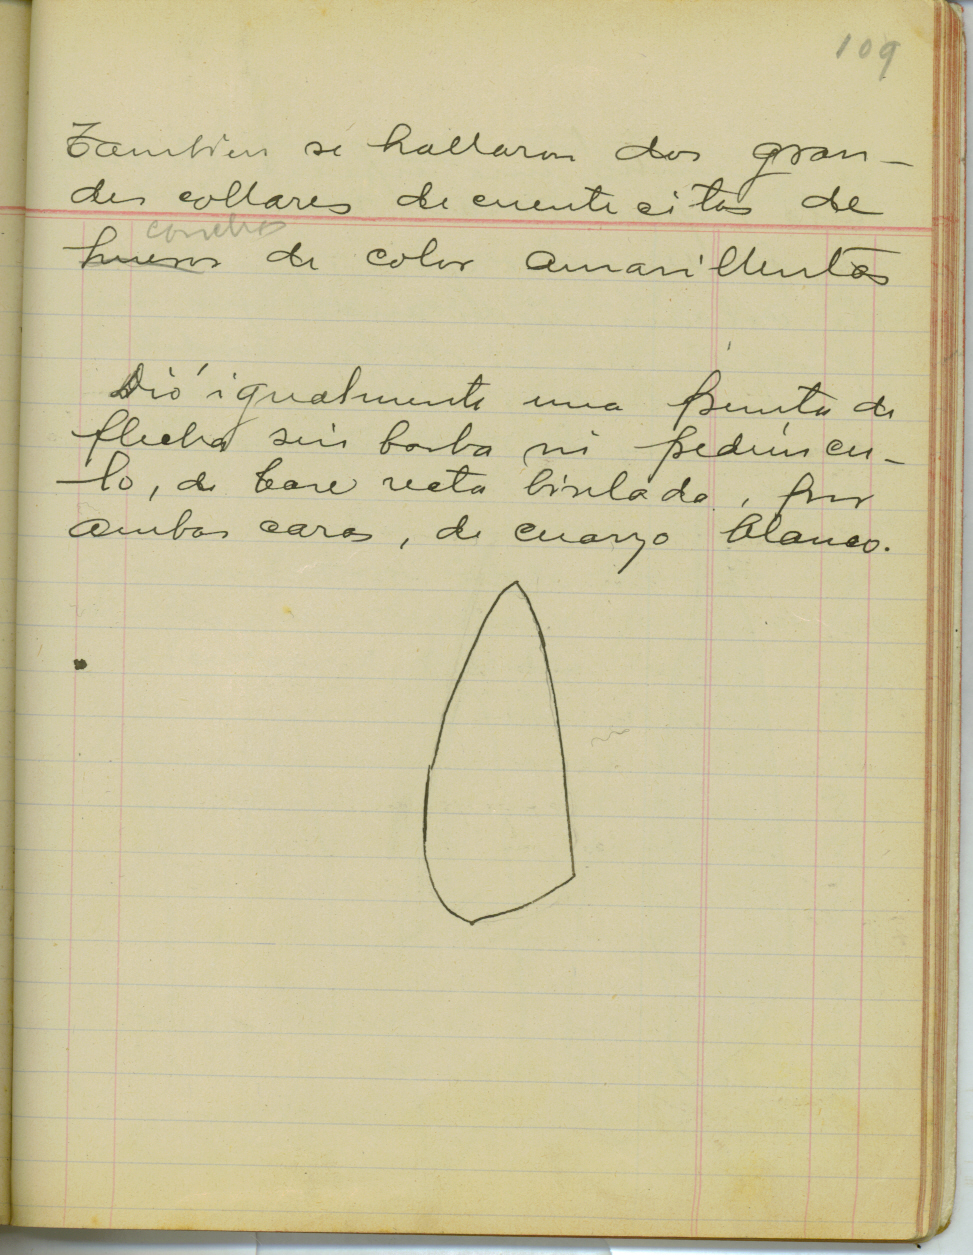 109
Tambien se hallaron dos gran-
des collares de cuentecitas de
concha
hueso de color amarillentas
Dió igualmente una punta de
flecha sin barba ni peduncu-
lo, de base recta biselada, por
ambas caras, de cuarzo blanco.